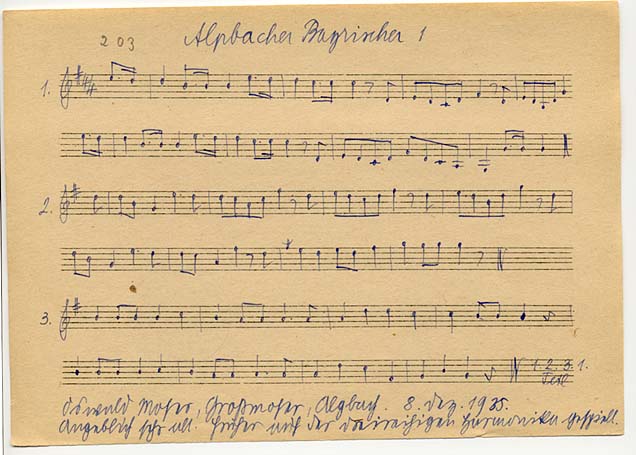 203 Alpbacher Bayrischer 1
1.
2.
3.
1. 2. 3. 1.
Teil
Oswald Moser, Großmoser, Alpbach. 8. Dez. 1935.
Angeblich sehr alt. Früher auf der dreireihigen Harmonika gespielt.